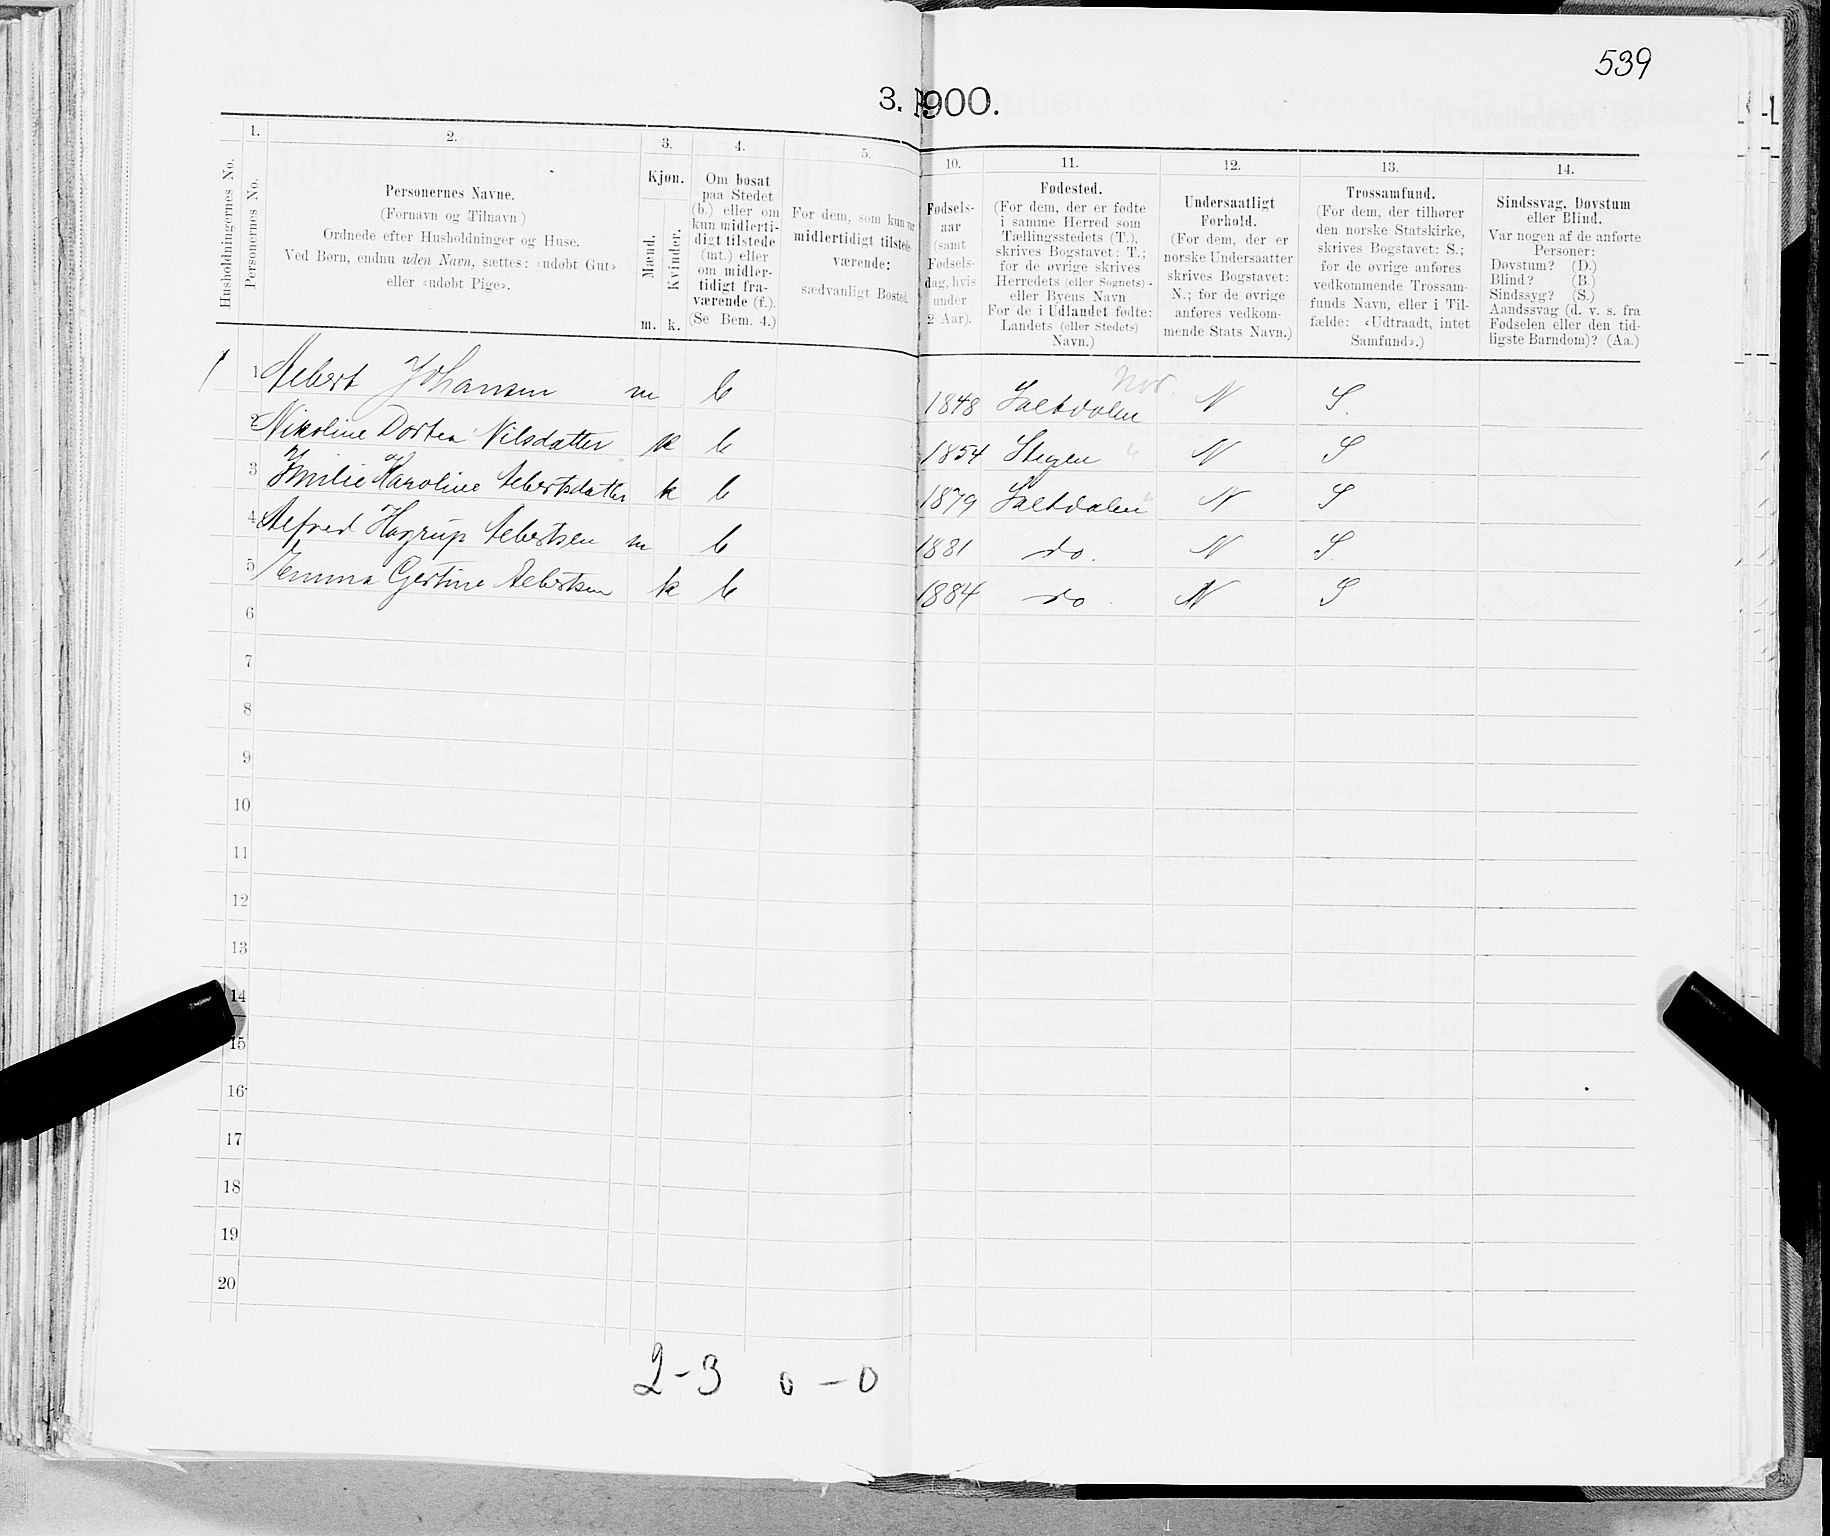 539
3. 1900.
1.
2.
3.
4.
5.
10.
11.
12.
13.
14.
Husholdningernes No.
Personernes No.
Personernes Navne.
(Fornavn og Tilnavn)
Ordnede efter Husholdninger og Huse.
Ved Børn, endnu uden Navn, sættes: «udøbt Gut»
eller «udøbt Pige».
Kjøn.
Mænd.
Kvinder.
m. k.
Om bosat
paa Stedet
(b.) eller om
kun midlerti-
digt tilstede
(mt.) eller
om midler-
tidigt fra-
værende (f.).
(Se Bem. 4.)
For dem, som kun var
midlertidigt tilstede-
værende:
sædvanligt Bosted.
Fødsels-
aar
(samt
Fødsels-
dag, hvis
under
2 Aar).
Fødested.
(For dem, der er fødte
i samme Herred som
Tællingsstedets (T.),
skrives Bogstavet: T.;
for de øvrige skrives
Herredets (eller Sognets)
eller Byens Navn
For de i Udlandet fødte:
Landets (eller Stedets)
Navn.)
Undersaatligt
Forhold.
(For dem, der er
norske Undersaatter
skrives Bogstavet:
N.; for de øvrige
anføres vedkom-
mende Stats Navn.)
Trossamfund.
(For dem, der tilhører
den norske Statskirke,
skrives Bogstavet: S.;
for de øvrige anføres
vedkommende Trossam-
funds Navn, eller i Til-
fælde: «Udtraadt, intet
Samfund».)
Sindssvag, Døvstum
eller Blind.
Var nogen af de anførte
Personer:
Døvstum? (D.)
Blind? (B.)
Sindssyg? (S.)
Aandssvag (d. v. s. fra
Fødselen eller den tid-
ligste Barndom)? (Aa.)
1 1 Albert Johansen m b 1848 Saltdalen Nor. N S.
2 Nikoline Dortea Nilsdatter k b 1854 Stegen " N S
3 Emilie Karoline Albertsdatter k b 1879 Saltdalen " N S
4 Alfred Hagrup Albertsen m b 1881 do. N S.
5 Emma Gertine Albertsen k b 1884 do N S
6
7
8
9
10
11
12
13
14
15
16
17
18
19
20
2-3 0-0